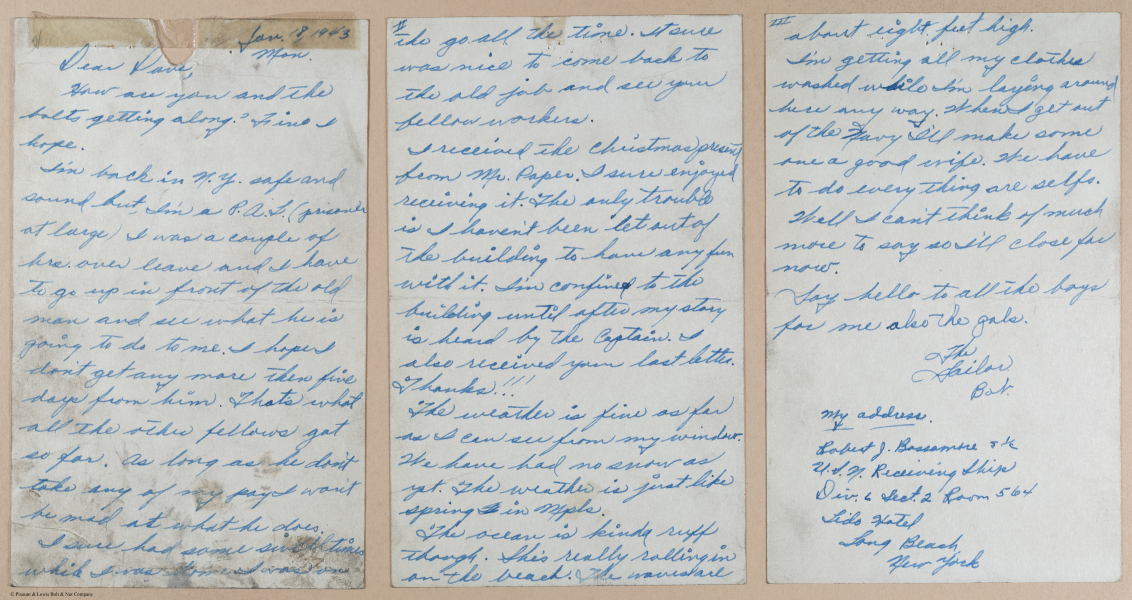 Jan. 18, 1943
Mon.
Dear Dave,
How are you and the
bolts getting along? Fine I
hope.
I'm back in N.Y. safe and
sound but, I'm a P.A.L. (prisoner
at large) I was a couple of
hrs. over leave and I have
to go up in front of the old
man and see what he is
going to do to me. I hope I
don't get any more then five
days from him. Thats what
all the other fellows got
so far. As long as he don't
take any of my pay I won't
be mad at what he does.
I sure had some swell times
while I was home. I was on
II
the go all the time. It sure
was nice to come back to
the old job and see your
fellow workers.
I received the Christmas present
from Mr. Paper. I sure enjoyed
receiving it. The only trouble
is I haven't been let out of
the building to have any fun
with it. I'm confined to the
building until after my story
is heard by the Captain. I
also received your last letter.
Thanks!!!
The weather is fine as far
as I can see from my window.
We have had no snow as
yet. The weather is just like
spring is in Mpls.
The ocean is kinda ruff
though. She's really rolling in
on the beach. The waves are
III
about eight feet high.
I'm getting all my clothes
washed while I'm laying around
here any way. When I get out
of the Navy I'll make some
one a good wife. We have
to do every thing are selfs.
Well I can't think of much
more to say so I'll close for
now.
Say hello to all the boys
for me also the gals.
The
Sailor
Bob.
My address.
Robert J. S 2/c
U.S.N. Receiving Ship
Div. 6 Sect. 2 Room 564
Lido Hotel
Long Beach,
New York
© Picoune & Lewis Bolt & Nut Company